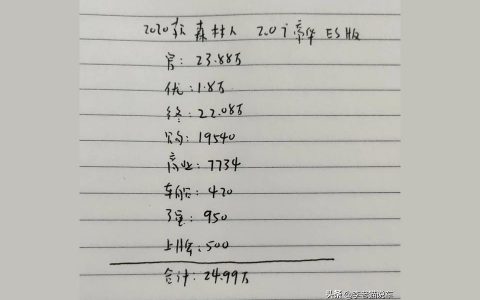 2020款 森林人 2.0i 豪华 ES版
官: 23.88万
优: 1.8万
终: 22.08万
购: 19540
商业: 7734
车船: 420
交强: 950
上牌: 500
合计: 24.99万
头条@李老猫说车